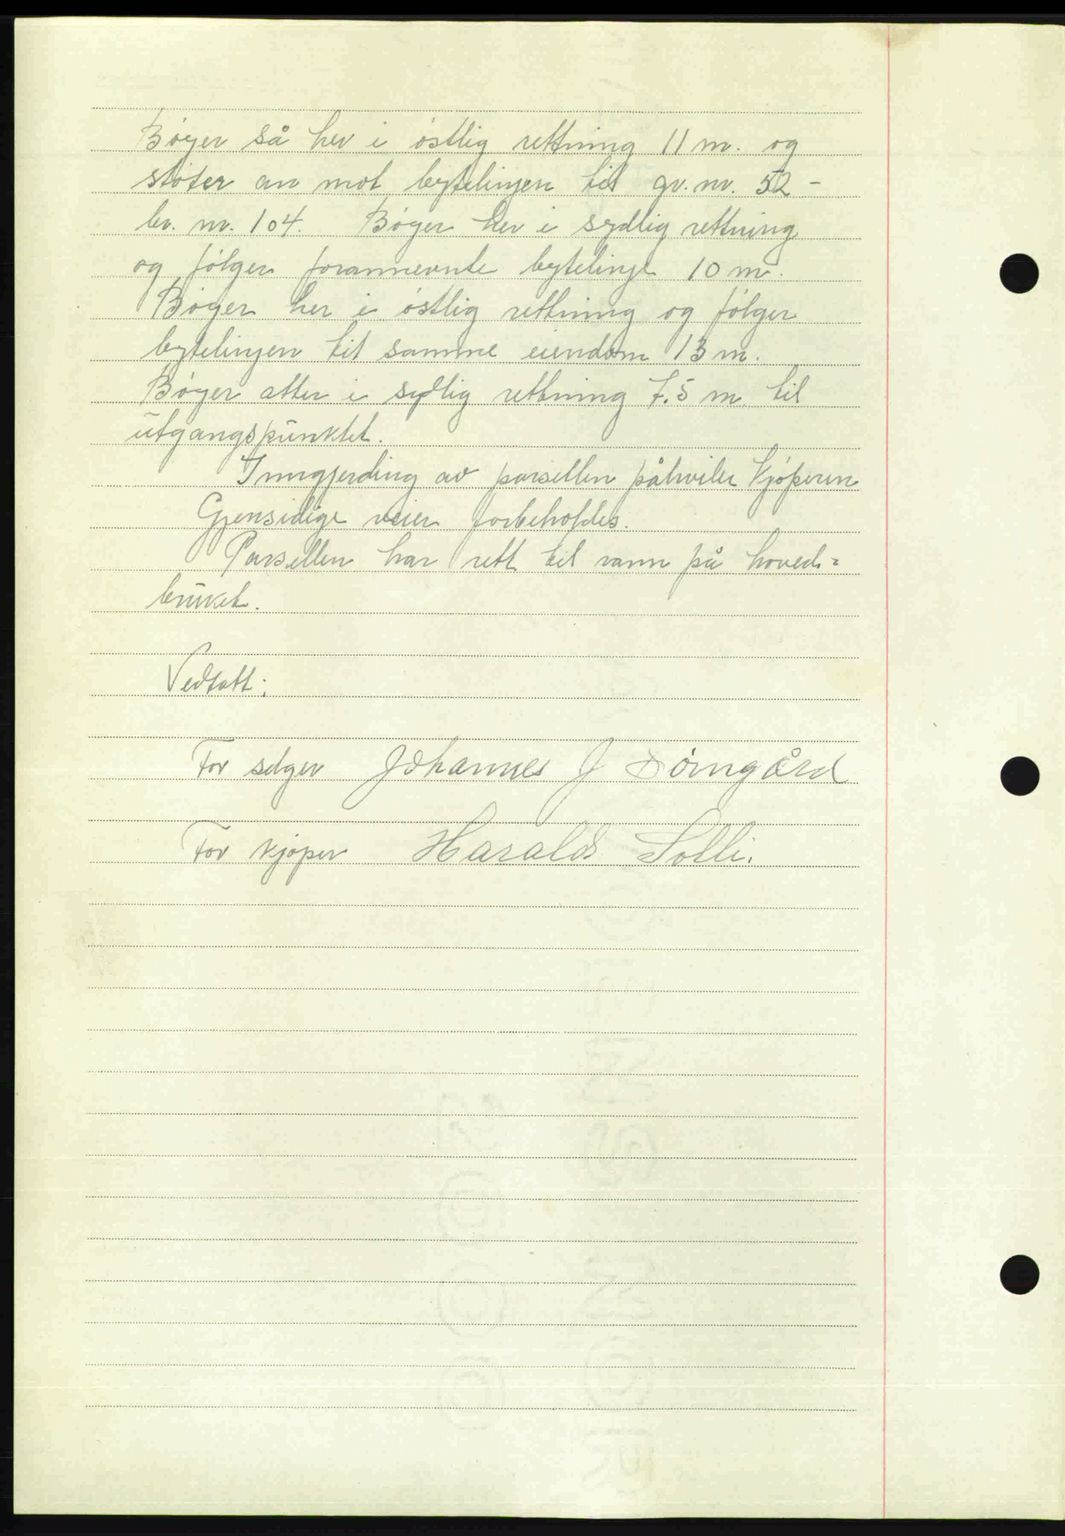 Bøyer så her i østlig rettning 11 m. og
støter an mot bytelinjen til gr.nr. 52 -
br. nr. 104. Bøyer her i sydlig rettning
og følger forannevnte bytelinje 10 m.
Bøyer her i østlig rettning og følger
bytelinjen til samme eiendom 13 m.
Bøyer atter i sydlig rettning 7.5 m til
utgangspunktet.
Inngjerding av parsellen påhviler kjøperen
Gjensidige veier forbeholdes.
Parsellen har rett til vann på hoved=
bruket.
Vedtatt:
For selger Johannes J
For kjøper Harald Solli.